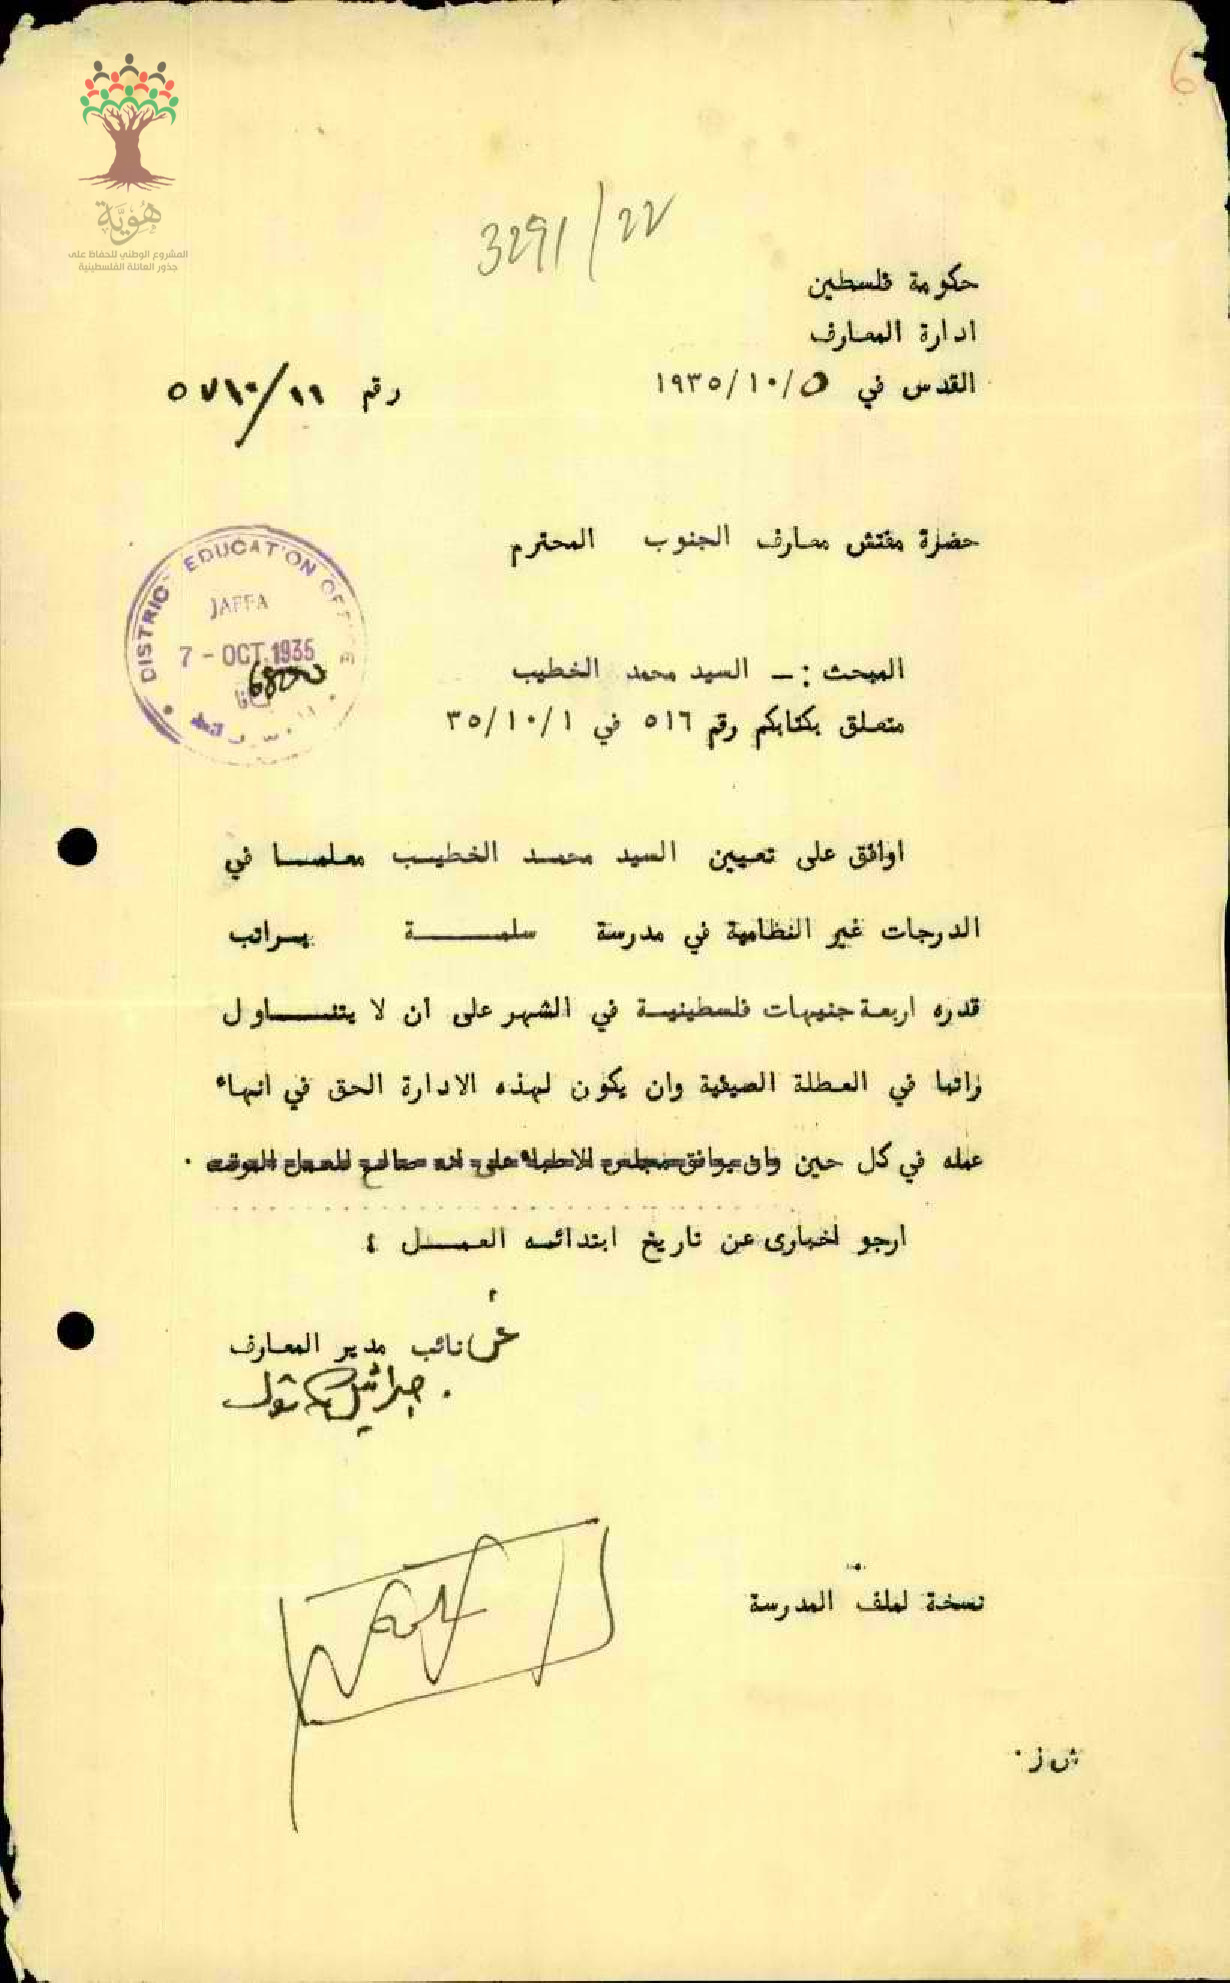 6
هُوِيَّة
المشروع الوطني للحفاظ على
جذور العائلة الفلسطينية
3291/22
حكومة فلسطين
ادارة المعارف
القدس في ١٩٣٥/١٠/٥
رقم
حضرة مفتش معارف الجنوب المحترم
DISTRICT EDUCATION OFFICE
JAFFA
7 - OCT. 1935
المبحث :ـ السيد محمد الخطيب
متعلق بكتابكم رقم ٥١٦ في ٣٥/١٠/١
اوافق على تعيين السيد محمد الخطيب معلما في
الدرجات غير النظامية في مدرسة سلمة براتب
قدره اربعة جنيهات فلسطينية في الشهر على ان لا يتناول
راتبا في العطلة الصيفية وان يكون لهذه الادارة الحق في انهاء
عمله في كل حين وان يوافق مجلس الاطباء على انه صالح للعمل الموقت .
ارجو اخباری عن تاريخ ابتدائه العمل ؛
عن نائب مدير المعارف
جبرائيل كاتول
نسخة لملف المدرسة
ش ز .